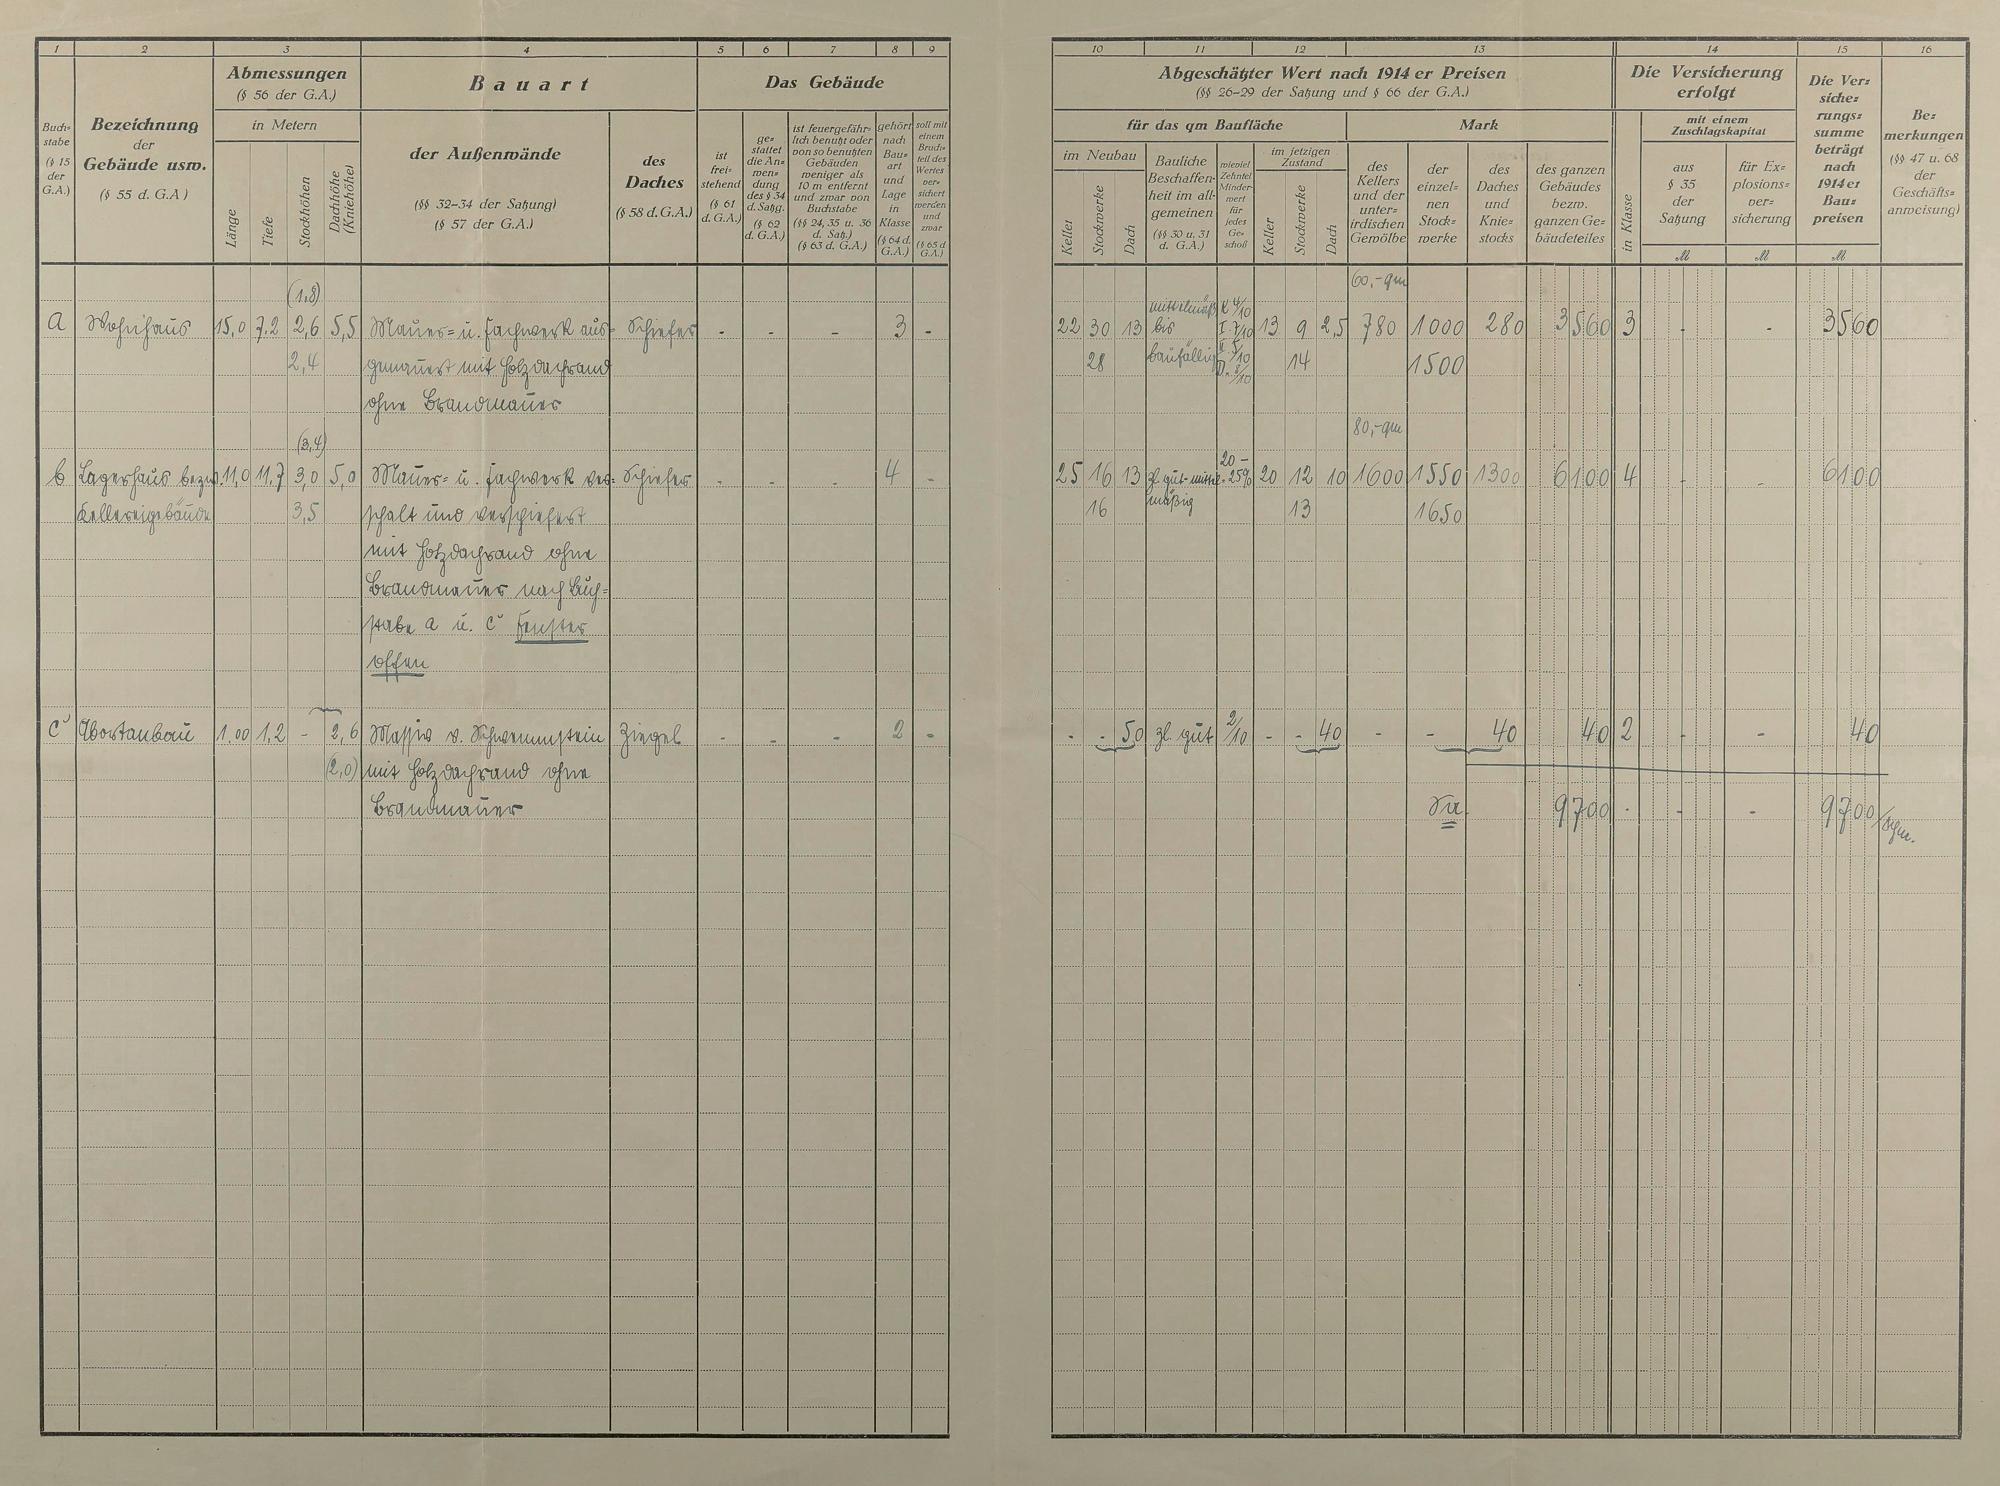 1 2 3 4 5 6 7 8 9
Buch-
stabe
(§ 15
der
G.A.)
Bezeichnung
der
Gebäude usw.
(§ 55 d. G.A)
Abmessungen
(§ 56 der G.A.)
in Metern
Länge
Tiefe
Stockhöhen
Dachhöhe
(Kniehöhe)
Bauart
der Außenwände
(§§ 32-34 der Satzung)
(§ 57 der G.A.)
des
Daches
(§ 58 d. G.A.)
Das Gebäude
ist
frei-
stehend
(§ 61
d. G.A.)
ge-
stattet
die An-
wen-
dung
des § 34
d. Satzg.
(§ 62
d. G.A.)
ist feuergefähr-
lich benutzt oder
von so benutzten
Gebäuden
weniger als
10 m entfernt
und zwar von
Buchstabe
(§§ 24, 35 u. 36
d. Satz.)
(§ 63 d. G.A.)
gehört
nach
Bau-
art
und
Lage
in
Klasse
(§ 64 d.
G.A.)
soll mit
einem
Bruch-
teil des
Wertes
ver-
sichert
werden
und
zwar
(§ 65 d
G.A.)
(1,8)
a Wohnhaus 15,0 7,2 2,6 5,5 Mauer- u. Fachwerk aus- Schiefer - - - 3 -
2,4 gemauert mit Holzdachrand
ohne Brandmauer
(3,4)
b Lagerhaus bezw. 11,0 11,7 3,0 5,0 Mauer- u. Fachwerk ver- Schiefer - - - 4 -
Kellereigebäude 3,5 schalt und verschiefert
mit Holzdachrand ohne
Brandmauer nach Buch-
stabe a u. c Fenster
offen
c Abortanbau 1,00 1,2 - 2,6 Massiv v. Schwemmstein Ziegel - - - 2 -
(2,0) mit Holzdachrand ohne
Brandmauer
10 11 12 13 14 15 16
Abgeschätzter Wert nach 1914 er Preisen
(§§ 26-29 der Satzung und § 66 der G.A.)
für das qm Baufläche
Mark
im Neubau
Keller
Stockwerke
Dach
Bauliche
Beschaffen-
heit im all-
gemeinen
(§§ 30 u. 31
d. G.A.)
wieviel
Zehntel
Minder-
wert
für
jedes
Ge-
schoß
im jetzigen
Zustand
Keller
Stockwerke
Dach
des
Kellers
und der
unter-
irdischen
Gewölbe
der
einzel-
nen
Stock-
werke
des
Daches
und
Knie-
stocks
des ganzen
Gebäudes
bezw.
ganzen Ge-
bäudeteiles
Die Versicherung
erfolgt
in Klasse
mit einem
Zuschlagskapital
aus
§ 35
der
Satzung
für Ex-
plosions-
ver-
sicherung
Die Ver-
siche-
rungs-
summe
beträgt
nach
1914 er
Bau-
preisen
Be-
merkungen
(§§ 47 u. 68
der
Geschäfts-
anweisung)
M M M
60,- qm
22 30 13 mittelmäß. K 4/10 13 9 2,5 780 1000 280 3560 3 - - 3560
bis I. 7/10
28 baufällig II. 5/10 14 1500
D. 8/10
80,- qm
25 16 13 zl. gut-mittel- 20-25% 20 12 10 1600 1550 1300 6100 4 - - 6100
16 mäßig 13 1650
- - 50 zl. gut 2/10 - - 40 - - 40 40 2 - - 40
Sa. 9700 - - - 9700